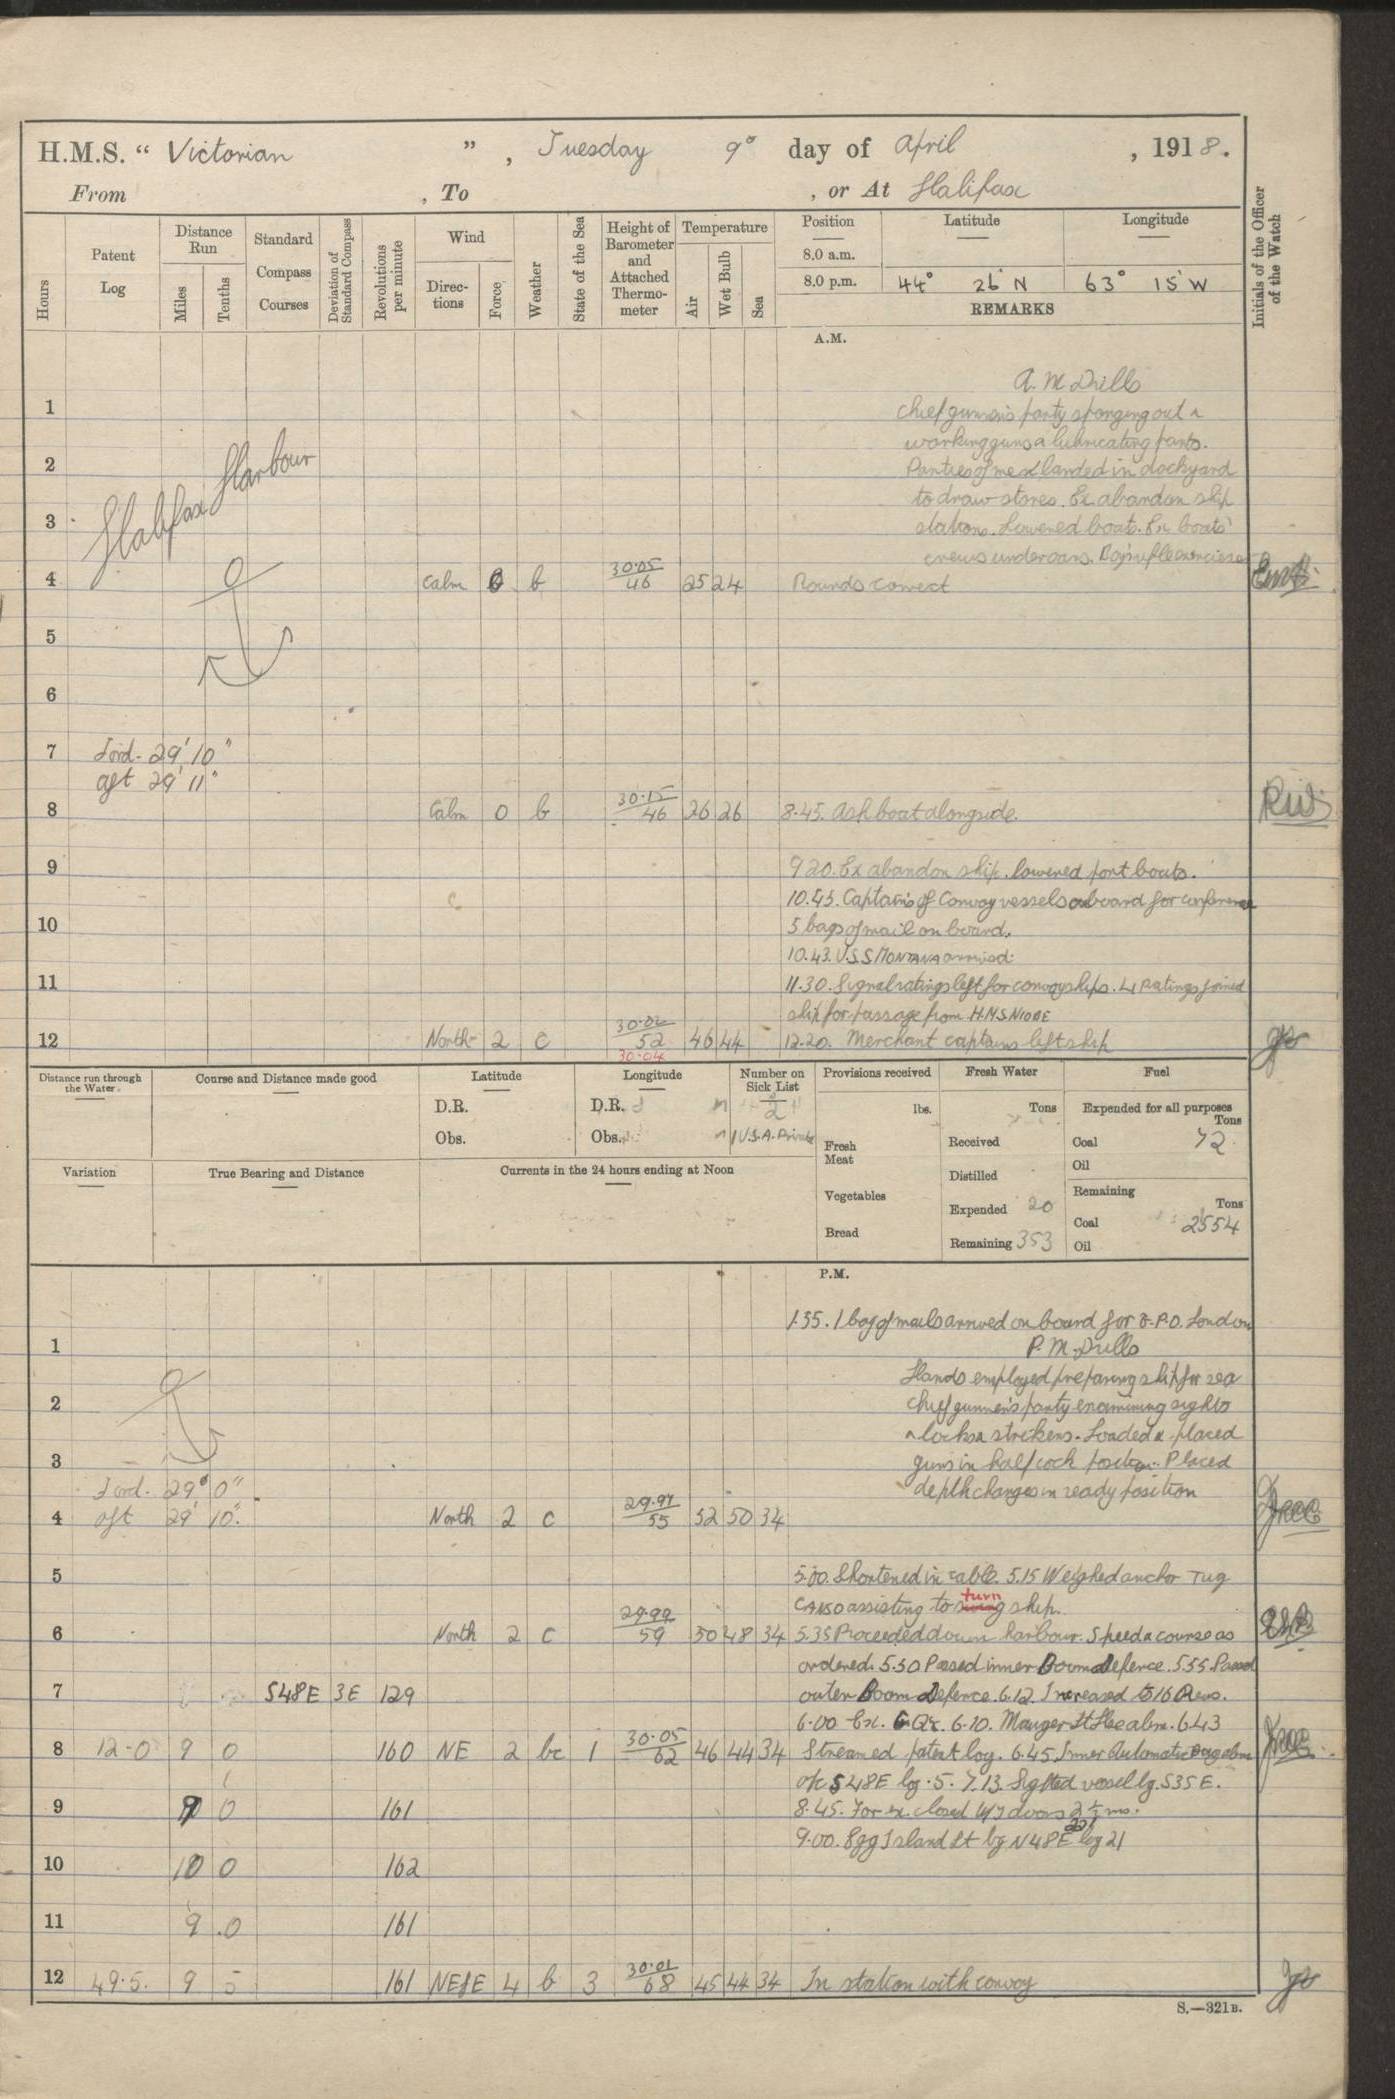 H.M.S. “ Victorian ” , Tuesday 9° day of April , 1918.
From , To , or At Halifax
Hours
Patent Log
Distance Run
Miles
Tenths
Standard Compass Courses
Deviation of Standard Compass
Revolutions per minute
Wind
Direc-tions
Force
Weather
State of the Sea
Height of Barometer and Attached Thermo-meter
Temperature
Air
Wet Bulb
Sea
Position Latitude Longitude
8.0 a.m.
8.0 p.m. 44° 26' N 63° 15' W
REMARKS
Initials of the Officer of the Watch
A.M.
A.M Drills
1 Chief gunner's party sponging out &
working guns & lubricating parts.
2 Parties of men landed in dockyard
to draw stores. Ex abandon ship
3 stations. Lowered boats. Ex boats'
Halifax Harbour
crews under oars. Boys rifle exercises
4 Calm 0 b 30.05 46 25 24 Rounds correct
5
6
7 Ford. 29' 10"
aft 29' 11"
8 Calm 0 b 30.15 46 26 26 8.45. Ash boat alongside.
9 9 20. Ex abandon ship. lowered port boats.
10.45. Captains of Convoy vessels onboard for conference
10 5 bags of mail on board.
10.43. U.S.S MONTANA arrived.
11 11.30. Signal ratings left for convoy ships. 4 Ratings joined
ship for passage from H.M.S NIOBE
12 North 2 c 30.02 52 46 44 12.20. Merchant captains left ship
30.04
Distance run through the Water.
Course and Distance made good
Latitude
D.R.
Obs.
Longitude
D.R.
Obs.
Number on Sick List
2
1 U.S.A. Private
Provisions received
lbs.
Fresh Meat
Vegetables
Bread
Fresh Water
Tons
Received
Distilled
Expended 20
Remaining 353
Fuel
Expended for all purposes
Tons
Coal 72
Oil
Remaining
Tons
Coal 2554
Oil
Variation
True Bearing and Distance
Currents in the 24 hours ending at Noon
P.M.
1.55. 1 bag of mails arrived on board for G.P.O. London
1 P.M. Drills
Hands employed preparing ship for sea
2 Chief gunner's party examining sights
& locks & strikers. Loaded & placed
3 guns in half cock position. Placed
Ford. 29° 0" depth charges in ready position
4 aft 29' 10". North 2 c 29.97 55 52 50 34
5 5.00. Shortened in cable. 5.15 Weighed anchor Tug
CANSO assisting to swing turn ship.
6 North 2 c 29.99 59 50 48 34 5.35 Proceeded down harbour. Speed & course as
ordered. 5.50 Passed inner Boom Defence. 5.55 Passed
7 S48E 3E 129 outer Boom Defence. 6.12 Increased to 16 Revs.
6.00 Ex. G. Qr. 6.10. Mauger Lt Hse abm. 6.43
8 12.0 9 0 160 NE 2 bc 1 30.05 62 46 44 34 Streamed patent log. 6.45 Inner Automatic Buoy abm
a/c S48E log .5. 7.13. Sighted vessel bg. S35E.
9 9 0 161 8.45. For ex. closed W/T doors 2½ ms.
9.00. Egg Island Lt bg N48E log 21
10 10 0 162
11 9 .0 161
12 49.5. 9 5 161 NE/E 4 b 3 30.01 68 45 44 34 In station with convoy
S.—321B.